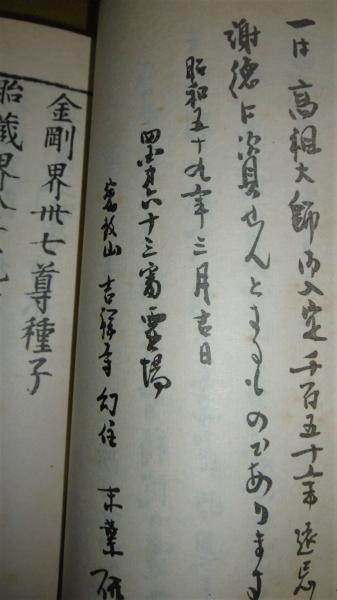 一は高祖大師御入定千百五十年遠忌
謝徳に資具せんとするものであります
昭和五十九年三月吉日
四国六十三番霊場
密教山 吉祥寺 幻住 末葉
金剛界卅七尊種子
胎蔵界